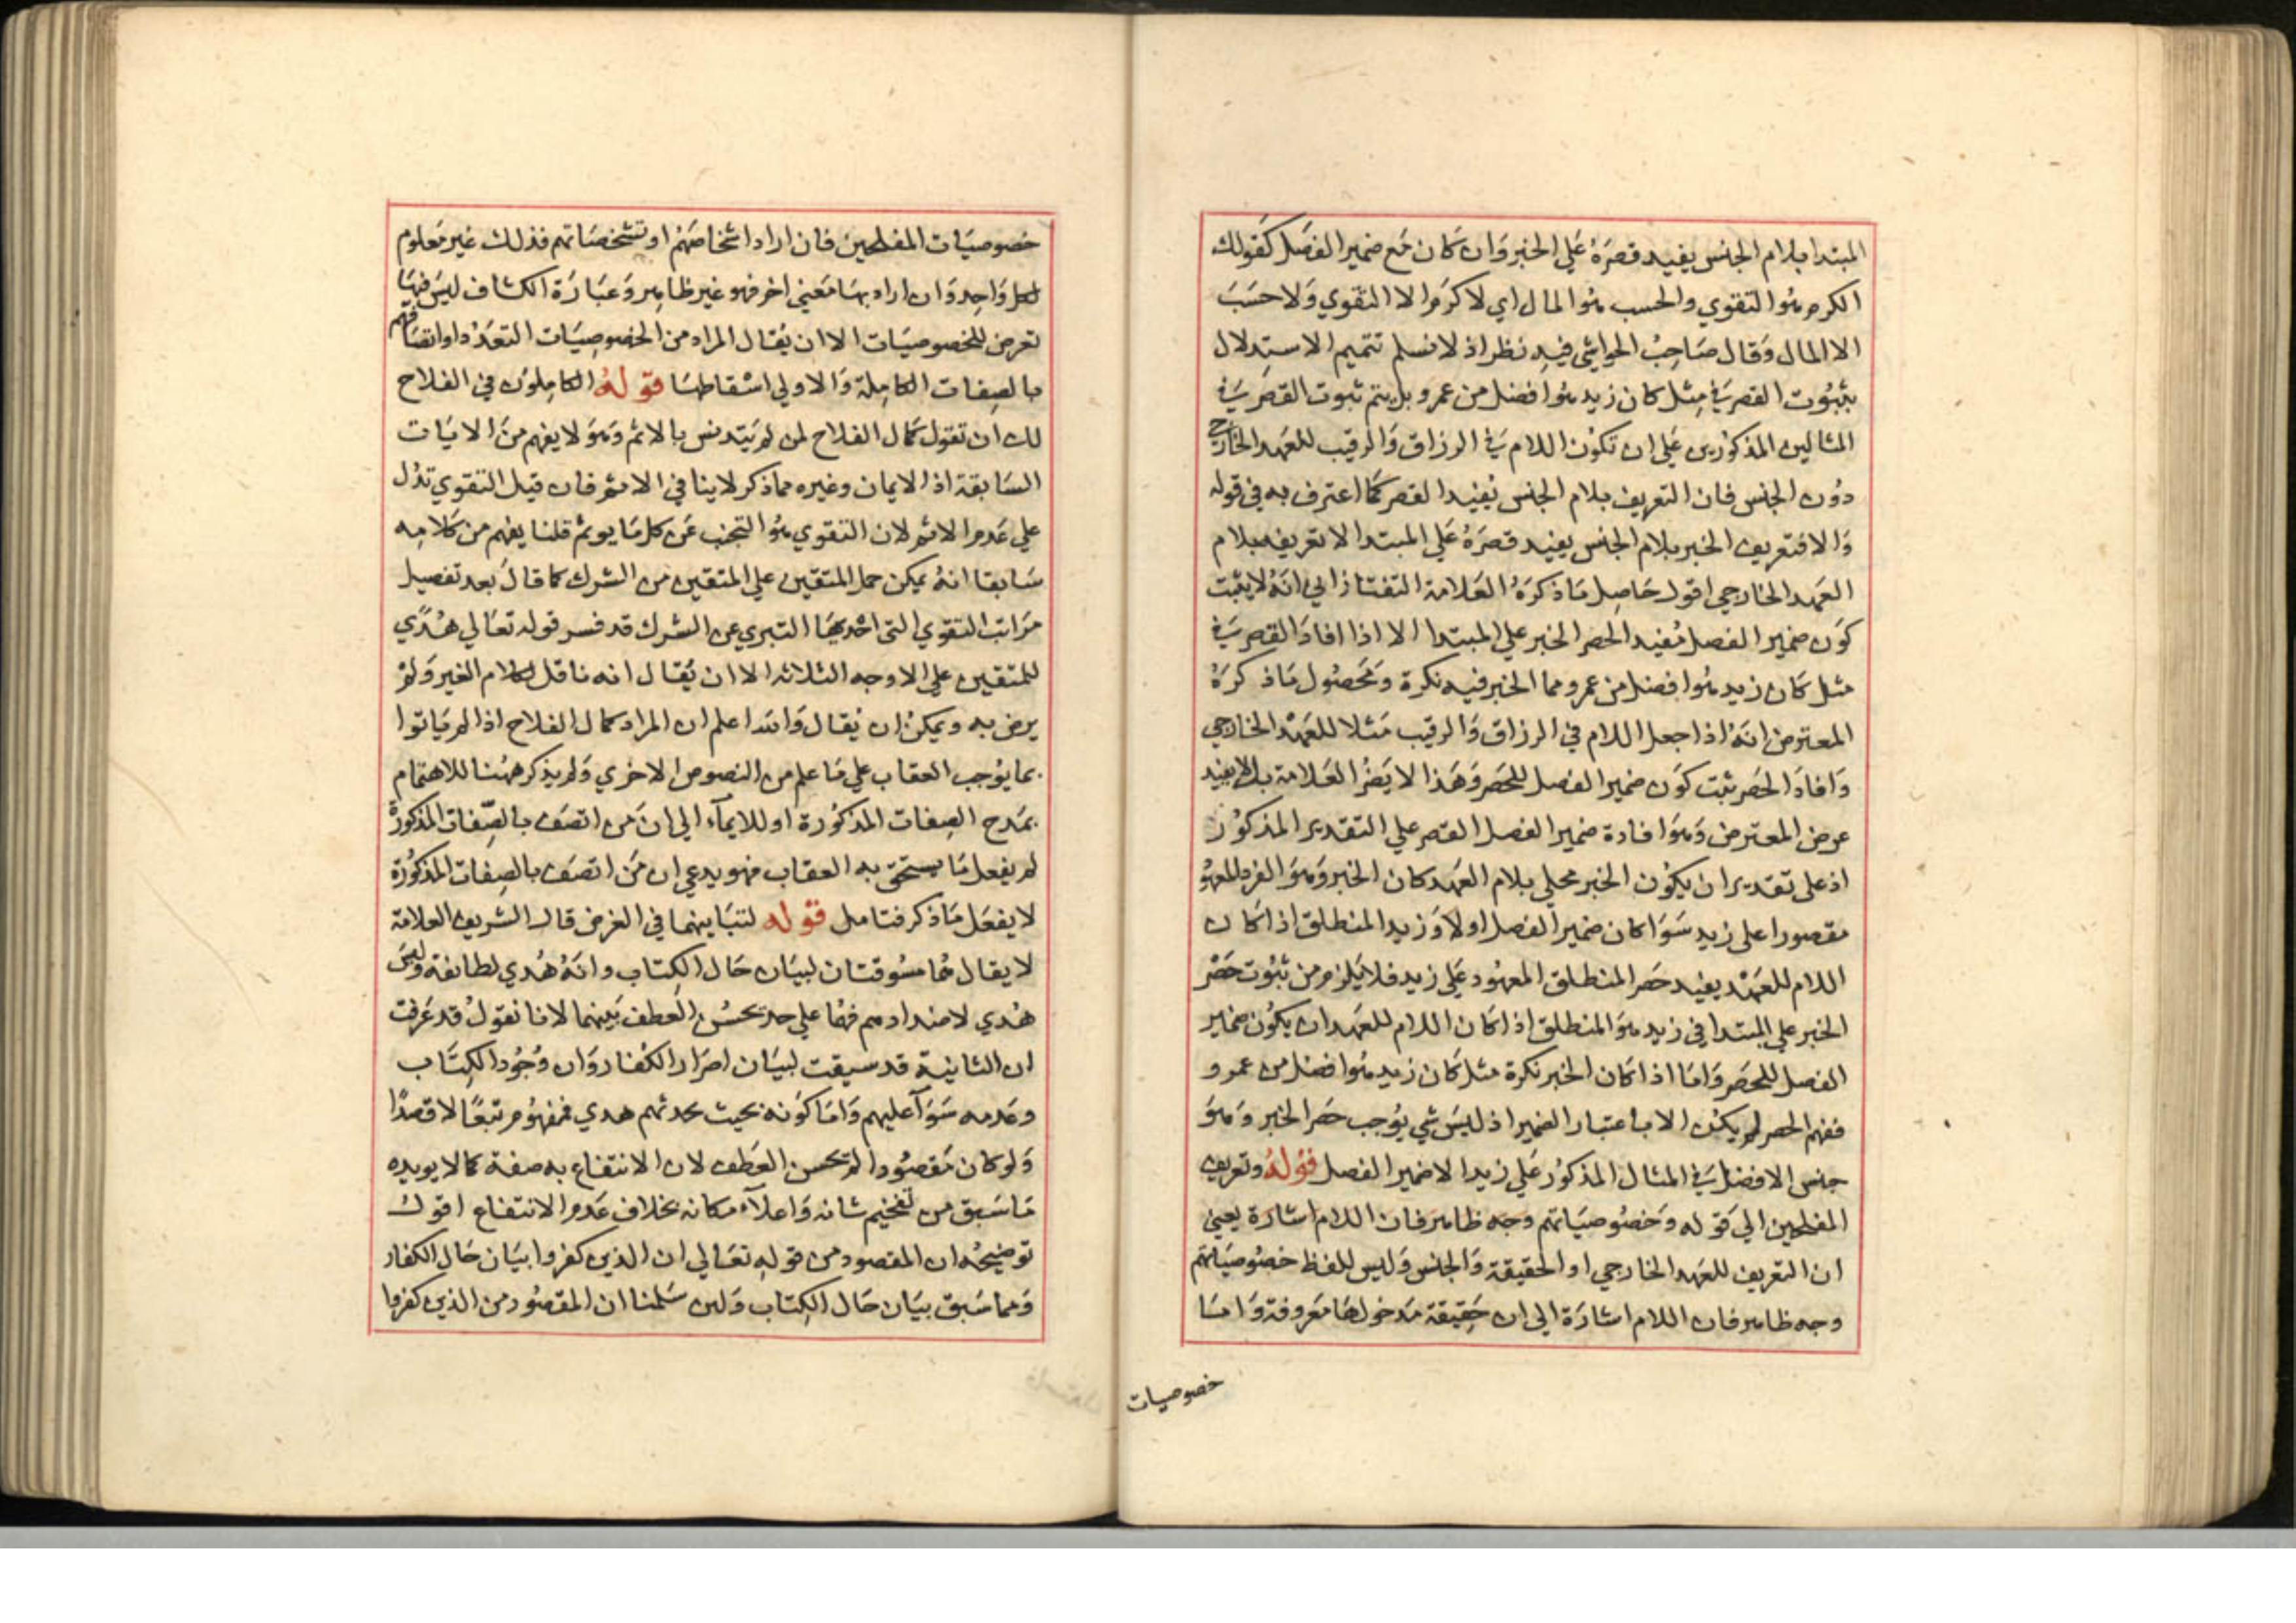 المبتدا بلام الجنس يفيد قصره علي الخبر وان كان مع ضمير الفصل كقولك
الكرم هو التقوي والحسب هو المال اي لا كرم الا التقوي ولا حسب
الا المال وقال صاحب الحواشي فيه نظر اذ لا نسلم تتميم الاستدلال
بثبوت القصر في مثل كان زيد هو افضل من عمرو بل يتم ثبوت القصر في
المثالين المذكورين علي ان تكون اللام في الرزاق والرقيب للعهد الخارجي
دون الجنس فان التعريف بلام الجنس يفيد القصر كما اعترف به في قوله
والا فتعريف الخبر بلام الجنس يفيد قصره علي المبتدا لا تعريفه بلام
العهد الخارجي اقول حاصل ما ذكره العلامة التفتازاني انه لا يثبت
كون ضمير الفصل مفيد الحصر الخبر علي المبتدا الا اذا افاد القصر في
مثل كان زيد هو افضل من عمرو مما الخبر فيه نكرة ومحصول ما ذكره
المعترض انه اذا جعل اللام في الرزاق والرقيب مثلا للعهد الخارجي
وافاد الحصر ثبت كون ضمير الفصل للحصر وهذا لا يضر العلامة بل لا يفيد
عرض المعترض وهو افادة ضمير الفصل القصر علي التقدير المذكور
اذ علي تقدير ان يكون الخبر محلي بلام العهد كان الخبر وهو الفرد المعهود
مقصورا علي زيد سوا كان ضمير الفصل اولا وزيد المنطلق اذا كان
اللام للعهد يفيد حصر المنطلق المعهود علي زيد فلا يلزم من ثبوت حصر
الخبر علي المبتدا في زيد هو المنطلق اذا كان اللام للعهد ان يكون ضمير
الفصل للحصر واما اذا كان الخبر نكرة مثل كان زيد هو افضل من عمرو
ففهم الحصر لم يكن الا باعتبار الضمير اذ ليس شي يوجب حصر الخبر وهو
جنس الافضل في المثال المذكور علي زيد الا ضمير الفصل قوله وتعريف
المفلحين الي قوله وخصوصياتهم وجه ظاهر فان اللام اشارة يعني
ان التعريف للعهد الخارجي او الحقيقة والجنس وليس للفظ خصوصياتهم
وجه ظاهر فان اللام اشارة الي ان حقيقة مدخولها معروفة واما
خصوصيات
خصوصيات المفلحين فان اراد اشخاصهم او تشخصاتهم فذلك غير معلوم
لكل واحد وان اراد بها معني اخر فهو غير ظاهر وعبارة الكشاف ليس فيها
تعرض للخصوصيات الا ان يقال المراد من الخصوصيات التعدد او اتصافهم
بالصفات الكاملة والاولي اسقاطها قوله الكاملون في الفلاح
لك ان تقول كمال الفلاح لمن لم يتدنس بالاثم وهو لا يفهم من الايات
السابقة اذ الايمان وغيره مما ذكر لا ينافي الاثم فان قيل التقوي تدل
علي عدم الاثم لان التقوي هو التجنب عن كل ما يوثم قلنا يفهم من كلامه
سابقا انه يمكن حمل المتقين علي المتقين من الشرك كما قال بعد تفصيل
مراتب التقوي التي احديها التبري عن الشرك قد فسر قوله تعالي هدي
للمتقين علي الاوجه الثلاثه الا ان يقال انه ناقل لكلام الغير ولم
يرض به ويمكن ان يقال والله اعلم ان المراد كمال الفلاح اذا لم ياتوا
بما يوجب العقاب علي ما علم من النصوص الاخري ولم يذكر ههنا للاهتمام
بمدح الصفات المذكورة او للايمآء الي ان من اتصف بالصفات المذكورة
لم يفعل ما يستحق به العقاب فهو يدعي ان من اتصف بالصفات المذكورة
لا يفعل ما ذكر فتامل قوله لتباينهما في الغرض قال الشريف العلامة
لا يقال هما مسوقتان لبيان حال الكتاب وانه هدي لطايفة وليس
هدي لاضدادهم فهما علي حد يحسن العطف بينهما لانا نقول قد عرفت
ان الثانية قد سيقت لبيان اصرار الكفار وان وجود الكتاب
وعدمه سوآ عليهم واما كونه بحيث هدي فمفهوم تبعا لا قصدا
ولو كان مقصودا لم يحسن العطف لان الانتفاع به صفة كمال يويده
ما سبق من تفخيم شانه واعلآء مكانه بخلاف عدم الانتفاع اقول
توضيحه ان المقصود من قوله تعالي ان الذين كفروا بيان حال الكفار
ومما سبق بيان حال الكتاب ولين سلمنا ان المقصود من الذين كفروا